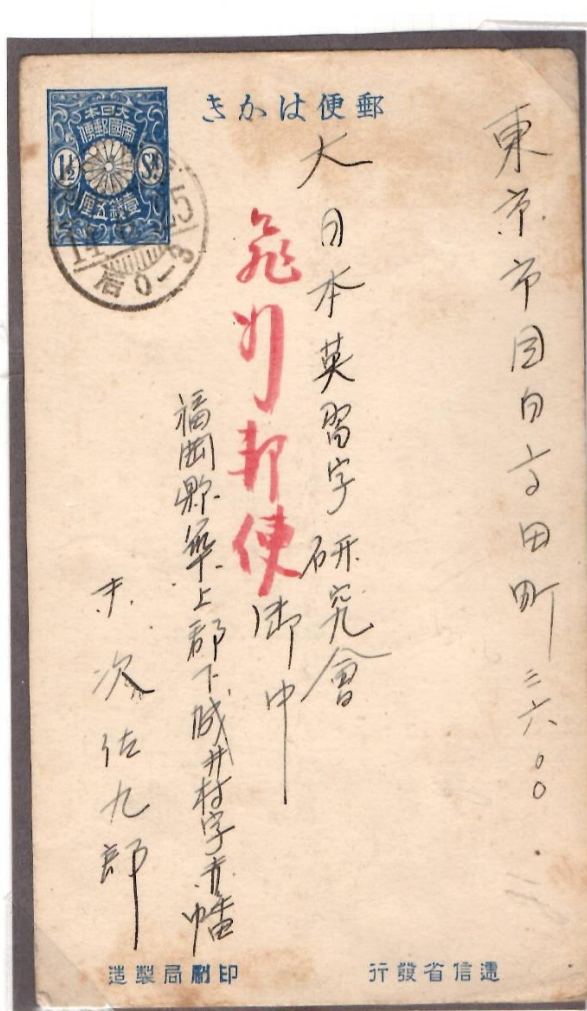 郵便はかき
大日本
帝國郵便
1½ Sn.
壹錢五厘
后0-3
東京市目白高田町三六〇〇
大日本英習字研究會
御中
飛行郵便
福岡縣築上郡下城井村字赤幡
末次佐九郎
遞信省發行
印刷局製造